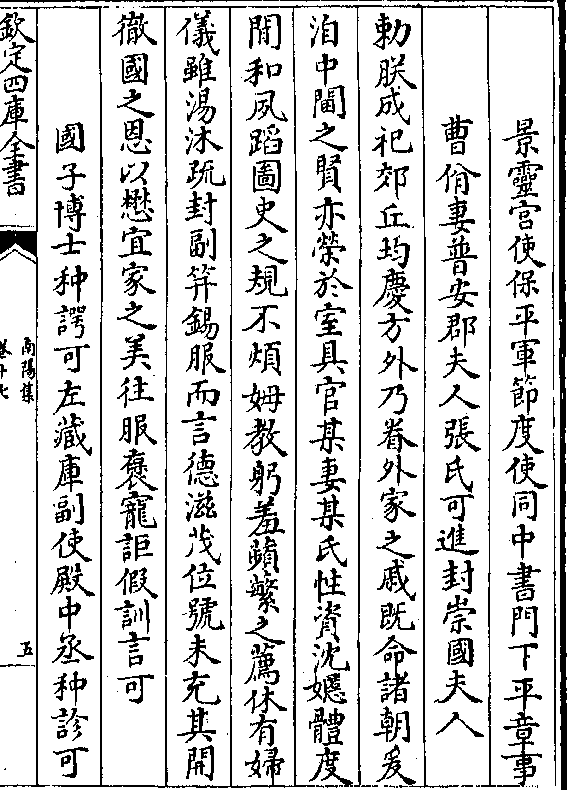 景靈宫使保平軍節度使同中書門下平章事
曹佾妻普安郡夫人張氏可進封崇國夫人
勅朕成祀郊丘均慶方外乃眷外家之戚既命諸朝爰
洎中閫之賢亦榮於室具官某妻某氏性資沈嫕體度
閒和夙蹈圖史之規不煩姆教躬羞蘋蘩之薦休有婦
儀雖湯沐疏封副笄錫服而言德滋茂位號未充其開
徹國之恩以懋宜家之美往服襃寵詎假訓言可
國子博士种諤可左藏庫副使殿中丞种診可
欽定四庫全書
南陽集
卷十七
五